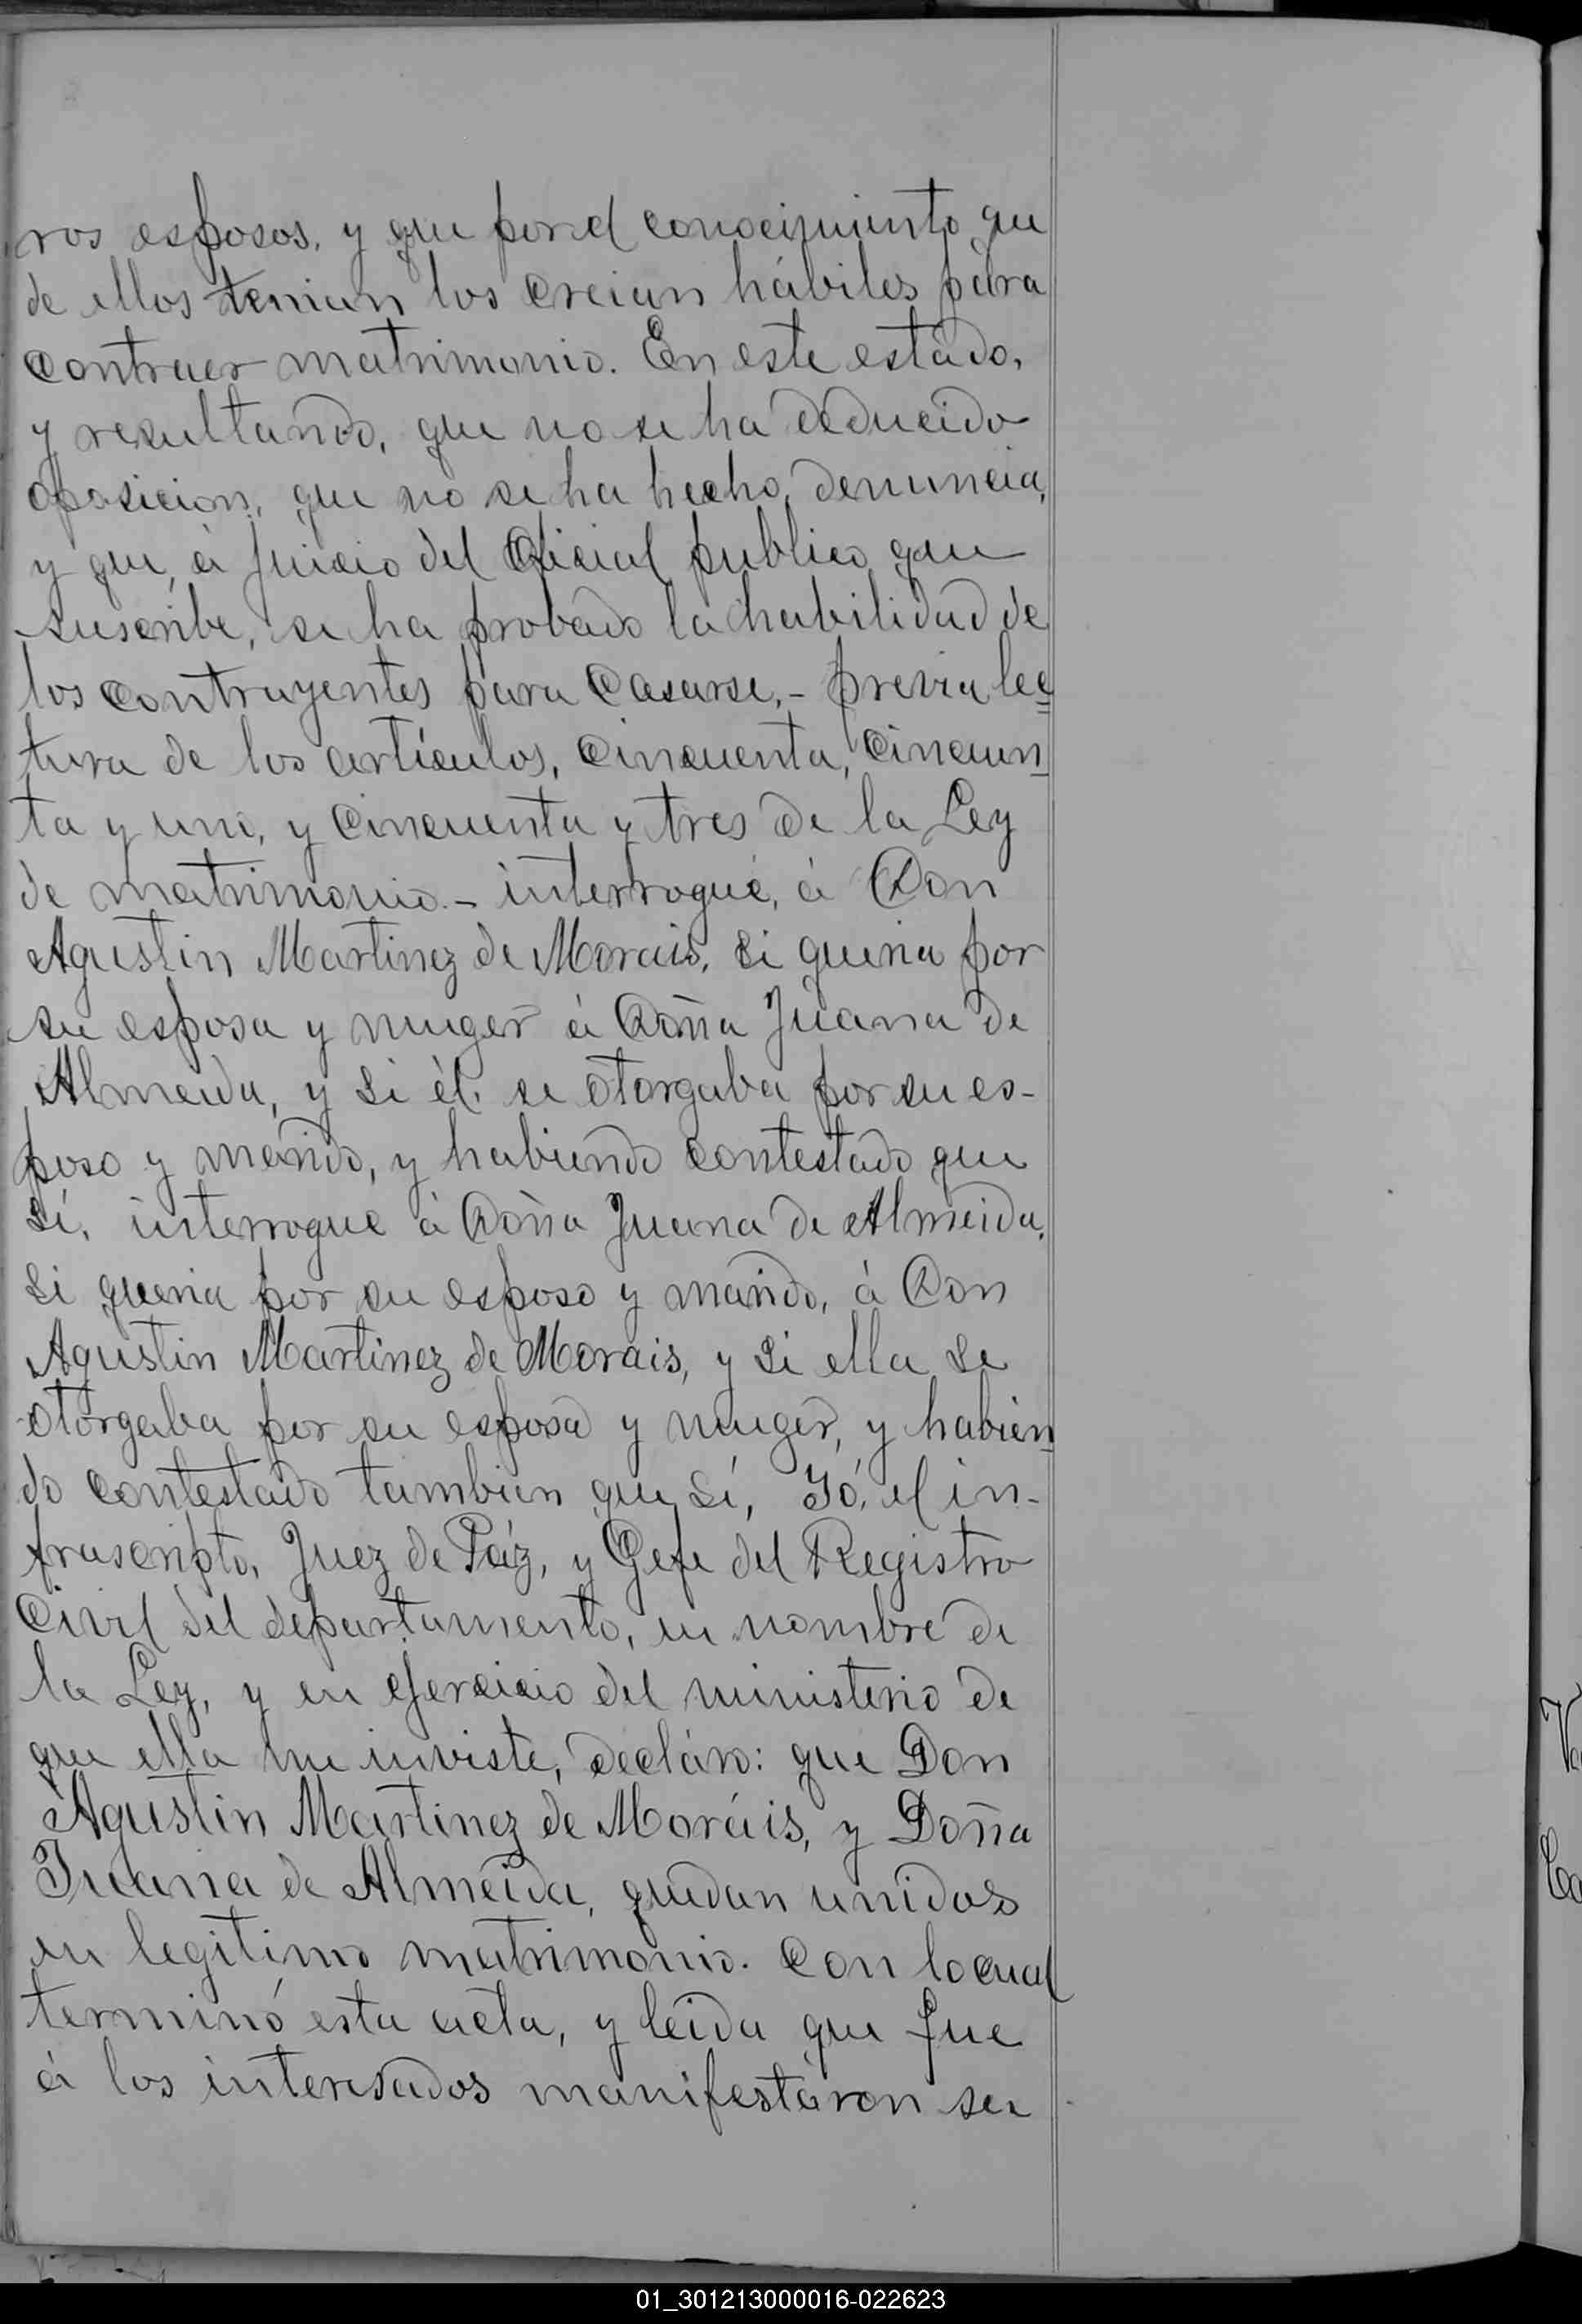 ros esposos, y que por el conocimiento que
de ellos tenian los creian hábiles para
contraer matrimonio. En este estado,
y resultando, que no se ha deducido
oposicion, que no se ha hecho, denuncia,
y que, á juicio del Oficial publico que
suscribe, se ha probado la habilidad de
los contrayentes para casarse,- previa lec=
tura de los artículos, cincuenta, cincuen_
ta y uno, y cincuenta y tres de la Ley
de matrimonio.- interrogué, á Don
Agustin Martinez de Morais, si queria por
su esposa y muger á Doña Juana de
Almeida, y si él se otorgaba por su es-
poso y marido, y habiendo contestado que
sí, interrogué á Doña Juana de Almeida,
si queria por su esposo y marido, á Don
Agustin Martinez de Morais, y si ella se
otorgaba por su esposa y muger, y habien_
do contestado tambien que sí, Yó, el in-
frascripto, Juez de Páz, y Gefe del Registro
Civil del departamento, en nombre de
la Ley, y en ejercicio del ministerio de
que ella me inviste, decláro: que Don
Agustin Martinez de Moráis, y Doña
Juana de Almeida, quedan unidos
en legitimo matrimonio. Con lo cual
terminó esta acta, y leida que fue
á los interesados manifestáron ser
01_301213000016-022623